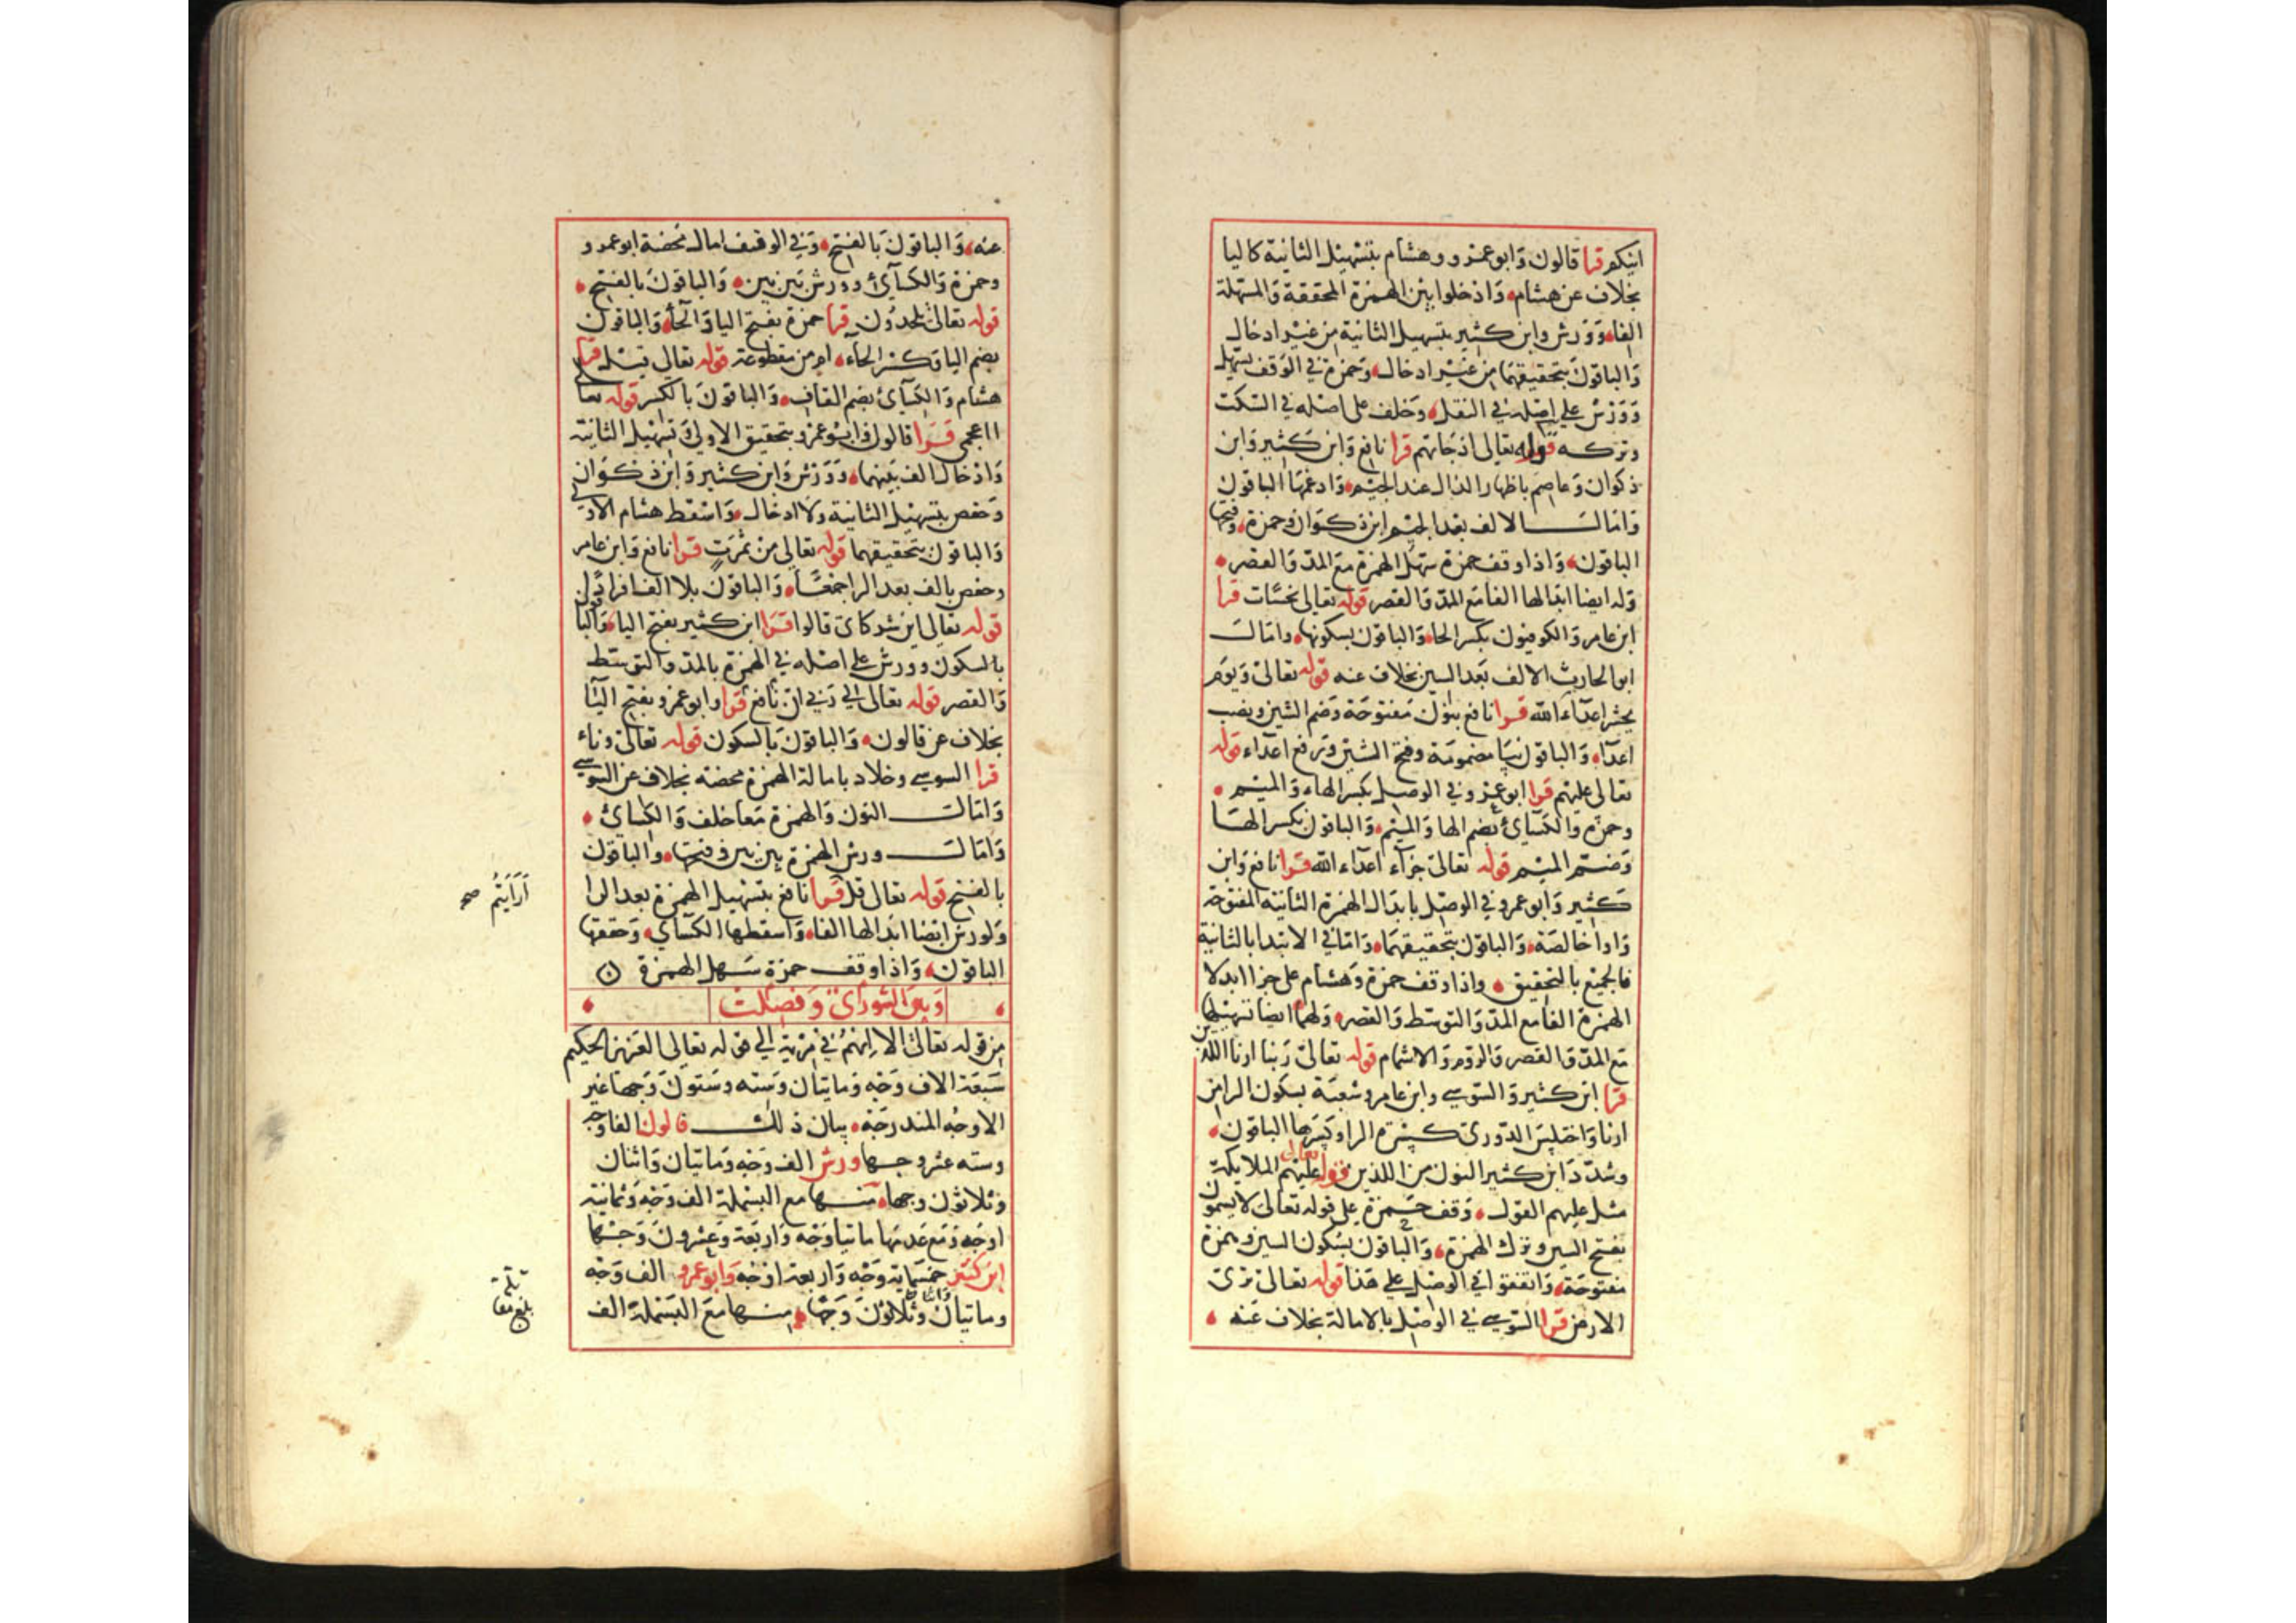 اينكم قرا قالون وَابوعمرو وهشام بتسْهيل الثانية كاليا
بخلاف عن هشام وَادخلوا بين الهمزة المحققة وَالمسهلة
الفا وَوَرش وابن كثير بتسهيل الثانية من غير ادخال
وَالباقون بتحقيقهما من غير ادخال وَحمزة في الوَقف يسهل
وَوَرش على اصله في النقل وَخلف على اصله في السكت
وتركه قوله تعالى اذ جاتهم قرا نافع وَابن كثير وَابن
ذكوان وَعاصم باظهار الذال عند الجيم وَادغمها الباقون
وَامالـــ الالف بعد الجيم ابن ذكوان وحمزة وفتحها
الباقون وَاذا وقف حمزة سهل الهمزة مع المد وَالقصر
وَله ايضا ابدالها الفا مع المد وَالقصر قوله تعالى نحسات قرا
ابن عامر وَالكوفيون بكسر الحا وَالباقون بسكونها وامالـ
ابو الحارث الالف بعد السين بخلاف عنه قوله تعالى وَيوم
يحشر اعدآء الله قرا نافع بنون مفتوحة وَضم الشين ونصب
اعدآء وَالباقون بيا مضمومة وفتح الشين وَرفع اعداء قوله
تعالى عليهم قرا ابوعمرو في الوصل بكسر الهاء وَالميم
وحمزة وَالكسآئ بضم الها وَالميم وَالباقون بكسر الها
وَضم الميم قوله تعالى جزآء اعدآء الله قرا نافع وَابن
كثير وَابوعمرو في الوصل بابدال الهمزة الثانية المفتوحة
وَاوا خالصة وَالباقون بتحقيقهما وَاما في الابتدا بالثانية
فالجميع بالتحقيق واذا وقف حمزة وَهشام على جزا ابدلا
الهمزة الفا مع المد وَالتوسط وَالقصر وَلهما ايضا تسهيلها
مع المد وَالقصر وَالروم وَالاشمام قوله تعالى رَبنا ارنا اللذين
قرا ابن كثير وَالسوسي وابن عامر وشعبة بسكون الرا من
ارنا وَاختلس الدوري كسرة الرا وكسرها الباقون
وشدد ابن كثير النون من اللذين قوله تعالى عليهم الملايكة
مثل عليهم القول وَقف حمزة على قوله تعالى لا يسمون
بفتح السين وترك الهمزة وَالباقون بسكون السين وهمزة
مفتوحة وَاتفقوا في الوصل على هذا قوله تعالى ترى
الارض قرا السوسي في الوصل بالامالة بخلاف عنه
عنه وَالباقون بالفتح وَفي الوقف امال محضة ابوعمرو
وحمزة وَالكسآئ وورش بين بين وَالباقون بالفتح
قوله تعالى يلحدُون قرا حمزة بفتح اليا وَالحآء وَالباقون
بضم اليا وَكسر الحآء ام من مقطوعة قوله تعالى قيل قرا
هشام وَالكسآئ بضم القاف وَالباقون بالكسر قوله تعالى
ااعجمي قرا قالون وَابوعمرو بتحقيق الاولى وَتسهيل الثانية
وَادخال الف بينهما وَوَرش وَابن كثير وَابن ذكوان
وَحفص بتسهيل الثانية وَلا ادخال وَاسقط هشام الاولى
وَالباقون بتحقيقهما قوله تعالى من ثمرَتٍ قرا نافع وَابن عامر
وحفص بالف بعد الرا جمعًا وَالباقون بلا الف افرادا
قوله تعالى اين شركاى قالوا قرا ابن كثير بفتح اليا وَالباقون
بالسكون وورش على اصله في الهمزة بالمد وَالتوسط
وَالقصر قوله تعالى الى رَبي ان نافع قرا وابوعمرو بفتح اليا
بخلاف عن قالون وَالباقون بالسكون قوله تعالى وناء
قرا السوسي وخلاد بامالة الهمزة محضة بخلاف عن السوسي
وَامالـــ النون وَالهمزة معا خلف وَالكسائ
وَامالـــ ورش الهمزة بين بين وفتحها والباقون
بالفتح قوله تعالى قل قرا نافع بتسهيل الهمزة بعد الرا
وَلورش ايضا ابدالها الفا وَاسقطها الكسآي وَحققها
الباقون وَاذا وقف حمزة سهل الهمزة
أَرَأَيتُم صح
وَبين الشورَى وَفصلت
من قوله تعالى الا انهم في مرية الى قوله تعالى العزيز الحكيم
سَبعَة الاف وَجه وَمايتان وَسته وَستون وَجها غير
الاوجُه المندرجَة بيان ذلك قالون الف اوجه
وسته عشر وجها ورش الف وَجه وَمايتان وَاثنان
وثلاثون وجها منها مع البسملة الف وَجه وَثمانية
اوجه وَمع عَدمها مايتا وَجه وَاربَعة وَعشرون وَجها
ابن كثير خمسماية وَجه وَاربعة اوجه وَابوعمرو الف وَجه
ومايتان وَاثنان وَثلاثون وَجها منها مع البسملة الف
بلغ مقا